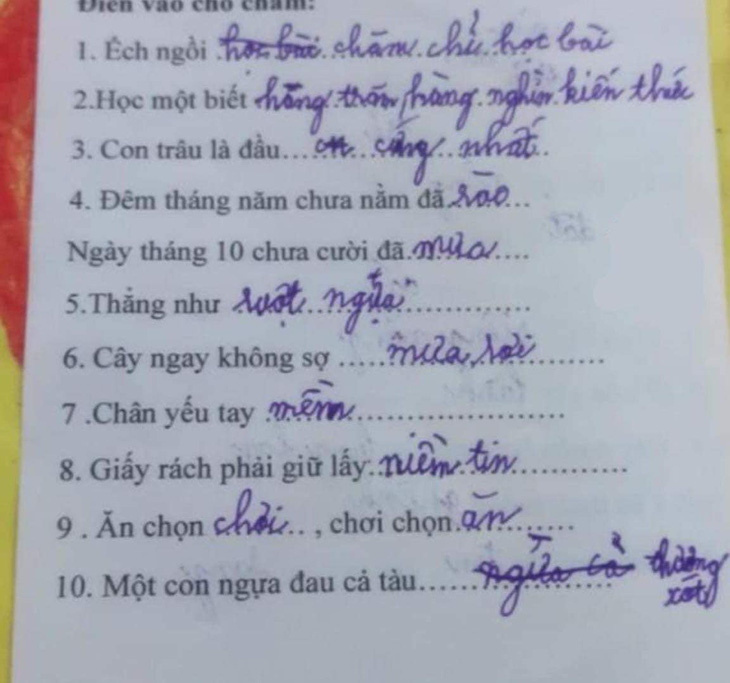 Điền vào chỗ chấm:
1. Ếch ngồi học bài chăm chỉ học bài
2.Học một biết hằng trăm hàng nghìn kiến thức
3. Con trâu là đầu... cứng nhất.
4. Đêm tháng năm chưa nằm đã rào...
Ngày tháng 10 chưa cười đã.mưa....
5.Thẳng như ruột ngựa
6. Cây ngay không sợ .....mưa rơi
7 .Chân yếu tay mềm
8. Giấy rách phải giữ lấy..niềm tin
9 . Ăn chọn chơi... , chơi chọn.ăn
10. Một con ngựa đau cả tàu......ngựa cả thương
xót